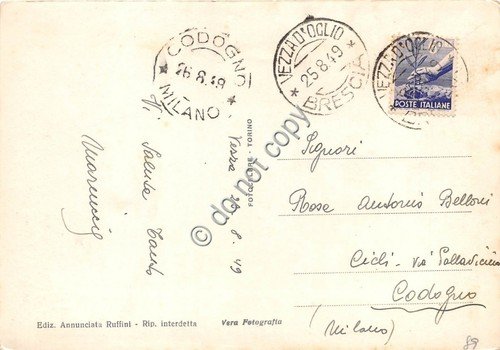 CODOGNO
26.8.49
* MILANO *
VEZZA D'OGLIO
25.8.49
* BRESCIA *
VEZZA D'OGLIO
POSTE ITALIANE
Vezza 25.8.49
Vi Saluta tanto
FOTO TORINO
do not copy
Signori
Rosa Antonio Belloni
Cicli - via Pallavicino
Codogno
(Milano)
Ediz. Annunciata Ruffini - Rip. interdetta
Vera Fotografia
89